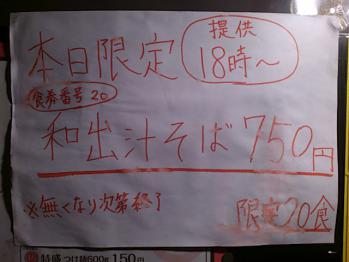 本日限定
提供
18時～
食券番号 20
和出汁そば750円
※無くなり次第終了
限定20食
特盛つけ麺600g 150円